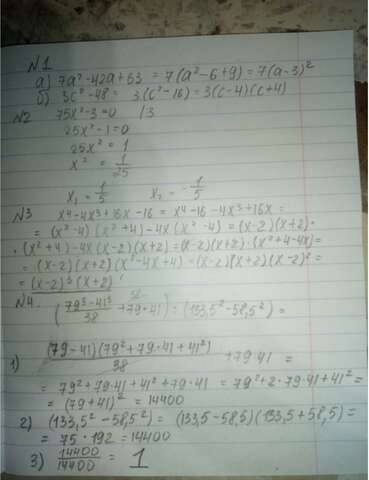 N1
а) 7a² - 42a + 63 = 7(a² - 6 + 9) = 7(a - 3)²
б) 3c² - 48 = 3(c² - 16) = 3(c - 4)(c + 4)
N2 75x² - 3 = 0 /3
25x² - 1 = 0
25x² = 1
x² = 1/25
x₁ = 1/5 x₂ = - 1/5
N3 x⁴ - 4x³ + 16x - 16 = x⁴ - 16 - 4x³ + 16x =
= (x² - 4)(x² + 4) - 4x(x² - 4) = (x - 2)(x + 2) ·
· (x² + 4) - 4x(x - 2)(x + 2) = (x - 2)(x + 2) · (x² + 4 - 4x) =
= (x - 2)(x + 2)(x² - 4x + 4) = (x - 2)(x + 2)(x - 2)² =
= (x - 2)³(x + 2)
N4. (79³ - 41³/38 + 79 · 41) : (133,5² - 58,5²) =
1) (79 - 41)(79² + 79 · 41 + 41²)/38 + 79 · 41 =
= 79² + 79 · 41 + 41² + 79 · 41 = 79² + 2 · 79 · 41 + 41² =
= (79 + 41)² = 14400
2) (133,5² - 58,5²) = (133,5 - 58,5)(133,5 + 58,5) =
= 75 · 192 = 14400
3) 14400/14400 = 1